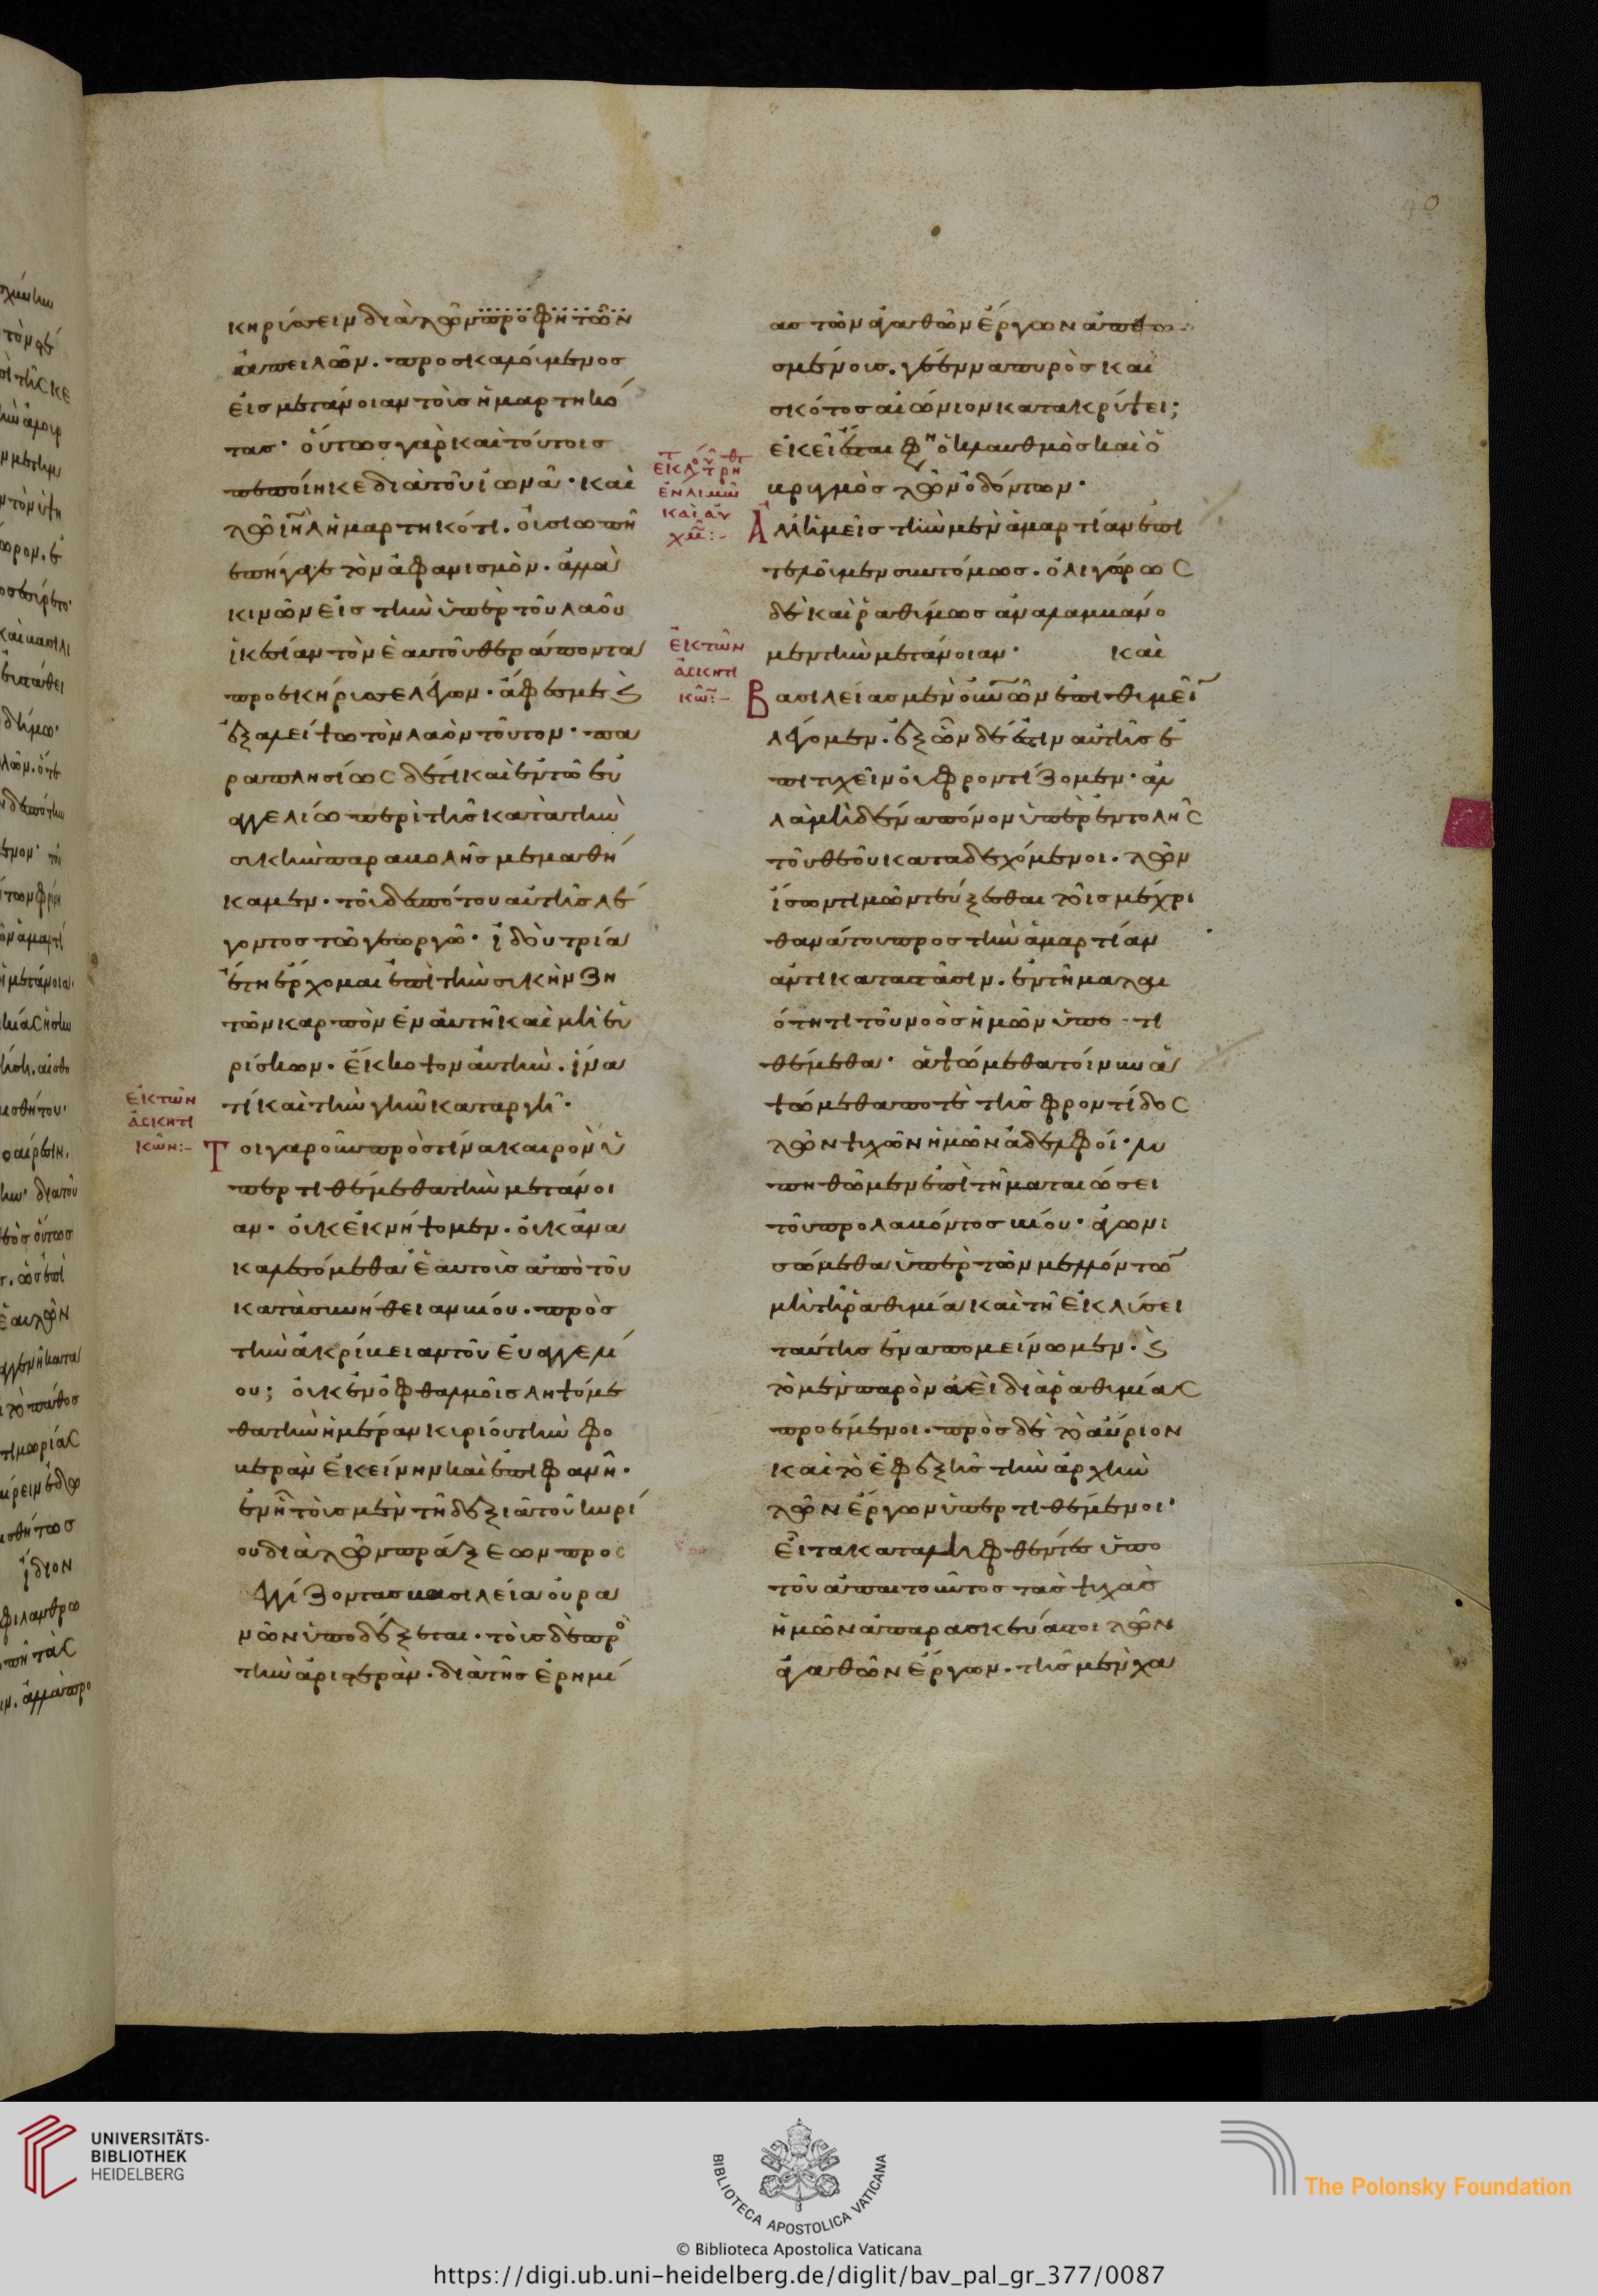 κηρύσειν διὰ τῶν προφητῶν
ἀπειλῶν. προσκαλούμενος
εἰς μετάνοιαν τοὺς ἡμαρτηκό
τας· οὕτως γὰρ καὶ τούτοις
πεποίηκε διὰ τοῦ ἰωνᾶ· καὶ
τῶ ἰη̅λ ἡμαρτηκότι. οὐ σιωπῆ
ἐπήγαγε τὸν ἀφανισμὸν. ἀλλὰ
κινῶν εἰς τὴν ὑπὲρ τοῦ λαοῦ
ἱκεσίαν τὸν ἑαυτοῦ θεράποντα
προσεκήρυσσε λέγων. ἄφες με ϗ
ἐξαλείψω τὸν λαὸν τοῦτον· πα
ραπλησίως δέ τι καὶ ἐν τῶ εὐ
αγγελίω περὶ τῆς κατὰ τὴν
συκὴν παραβολῆς μεμαθή
καμεν. τοῦ δεσπότου αὐτῆς λέ
γοντος τῶ γεωργῶ· ἰδοὺ τρία
ἔτη ἔρχομαι ἐπὶ τὴν συκὴν ζη
τῶν καρπὸν ἐν αὐτῆ καὶ μὴ εὑ
ρίσκων. ἔκκοψον αὐτὴν. ἵνα
τί καὶ τὴν γῆν καταργῆ·
ἐκ τῶν
ἀσκητι
κῶν:-
Τοιγαροῦν πρὸς τίνα καιρὸν ὑ
περτιθέμεθα τὴν μετάνοι
αν· οὐκ ἐκνήψομεν. οὐκ ἀνα
καλεσόμεθα ἑαυτοὺς ἀπὸ τοῦ
κατὰ συνήθειαν βίου. πρὸς
τὴν ἀκρίβειαν τοῦ εὐαγγελί
ου; οὐκ ἐν ὀφθαλμοῖς ληψόμε
θα τὴν ἡμέραν κυρίου τὴν φο
βερὰν ἐκείνην καὶ ἐπιφανῆ·
ἐν ἧ τοὺς μὲν τῆ δεξιᾶ τοῦ κυρί
ου διὰ τῶν πράξεων προς
εγγίζοντας βασιλεία οὐρα
νῶν ὑποδέξεται. τοὺς δὲ πρὸ
τὴν ἀριστερὰν. διὰ τῆς ἐρημί
ας τῶν ἀγαθῶν ἔργων
σμένους. γέεννα πυρὸς καὶ
σκότος αἰώνιον κατακρύψει;
ἐκεῖ ἔσται φη ὁ κλαυθμὸς καὶ ὁ
βρυγμὸς τῶν ὀδόντων·
Ἀλλ' ἡμεῖς τὴν μὲν ἁμαρτίαν ἐπι
τελοῦμεν συντόμως. ὀλιγώρως
δὲ καὶ ῥαθύμως ἀναλαμβανό
μεν τὴν μετάνοιαν· καὶ
ἐκ τῶν
ἀσκητι
κῶ:-
Βασιλείας μὲν οὐν͞ῶν ἐπιθυμεῖ
λέγομεν. ἐξ ὧν δέ ἐστιν αὐτῆς ἐ
πιτυχεῖν οὐ φροντίζομεν· ἀλ
λὰ μηδένα πόνον ὑπὲρ ἐντολῆς
τοῦ θεοῦ καταδεχόμενοι. τῶν
ἴσων τιμῶν τεύξεσθαι τοῖς μέχρι
θανάτου πρὸς τὴν ἁμαρτίαν
ἀντικαταστᾶσιν. ἐν τῆ μαται
ότητι τοῦ νοὸς ἡμῶν ὑπο τι
θέμεθα· ἁψώμεθα τοίνυν ἁ
ψώμεθα ποτὲ τῆς φροντίδος
τῶν ψυχῶν ἡμῶν ἀδελφοί· λυ
πηθῶμεν ἐπὶ τῆ ματαιώσει
τοῦ προλαβόντος βίου· ἀγωνι
σώμεθα ὑπὲρ τῶν μελλόντω
μὴ τῆ ῥαθυμία καὶ τῆ ἐκλύσει
ταύτης ἐναπομείνωμεν. ϗ
τὸ μὲν παρὸν ἀεὶ διὰ ῥαθυμίας
προέμενοι. πρὸς δὲ τὸ αὔριον
καὶ τὸ ἐφεξῆς τὴν ἀρχὴν
τῶν ἔργων ὑπερτιθέμενοι·
εἶτα καταληφθέντες ὑπο
τοῦ ἀπαιτοῦντος τὰς ψυχὰς
ἡμῶν ἀπαρασκεύαστοι τῶν
ἀγαθῶν ἔργων. τῆς μὲν χα
UNIVERSITÄTS-
BIBLIOTHEK
HEIDELBERG
BIBLIOTECA APOSTOLICA VATICANA
© Biblioteca Apostolica Vaticana
The Polonsky Foundation
https://digi.ub.uni-heidelberg.de/diglit/bav_pal_gr_377/0087